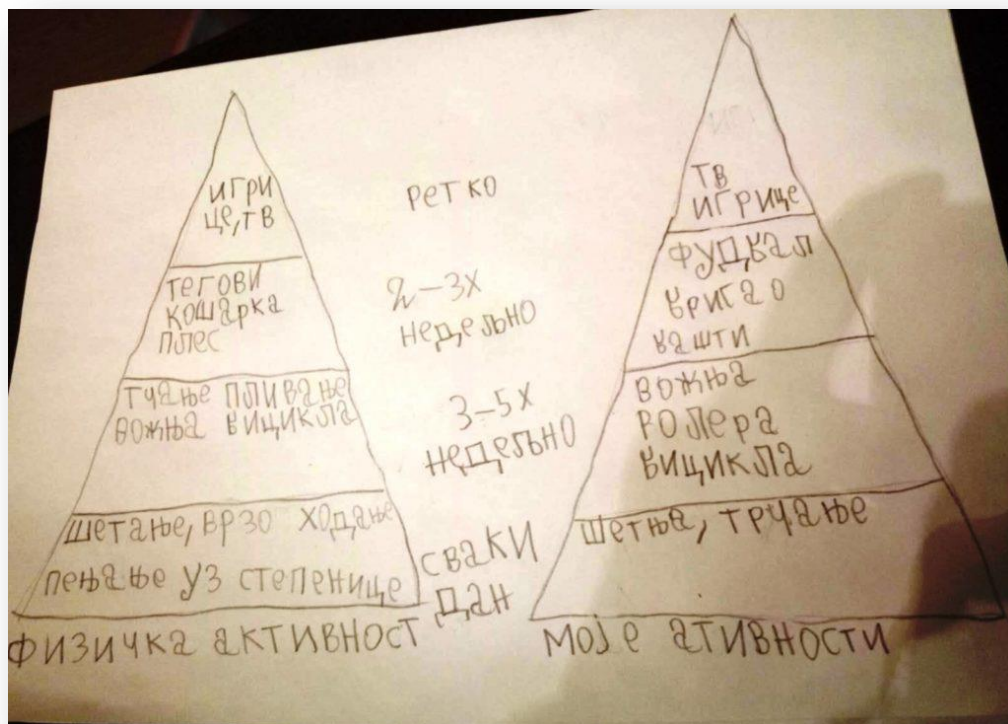 игри
це,тв
тегови
кошарка
плес
тчање пливање
вожња бицикла
шетање, брзо ходање
пењање уз степенице
физичка активност
ретко
2-3х
недељно
3-5х
недељно
сваки
дан
тв
игрице
фудбал
брига о
башти
вожња
ролера
бицикла
шетња, трчање
моје ативности